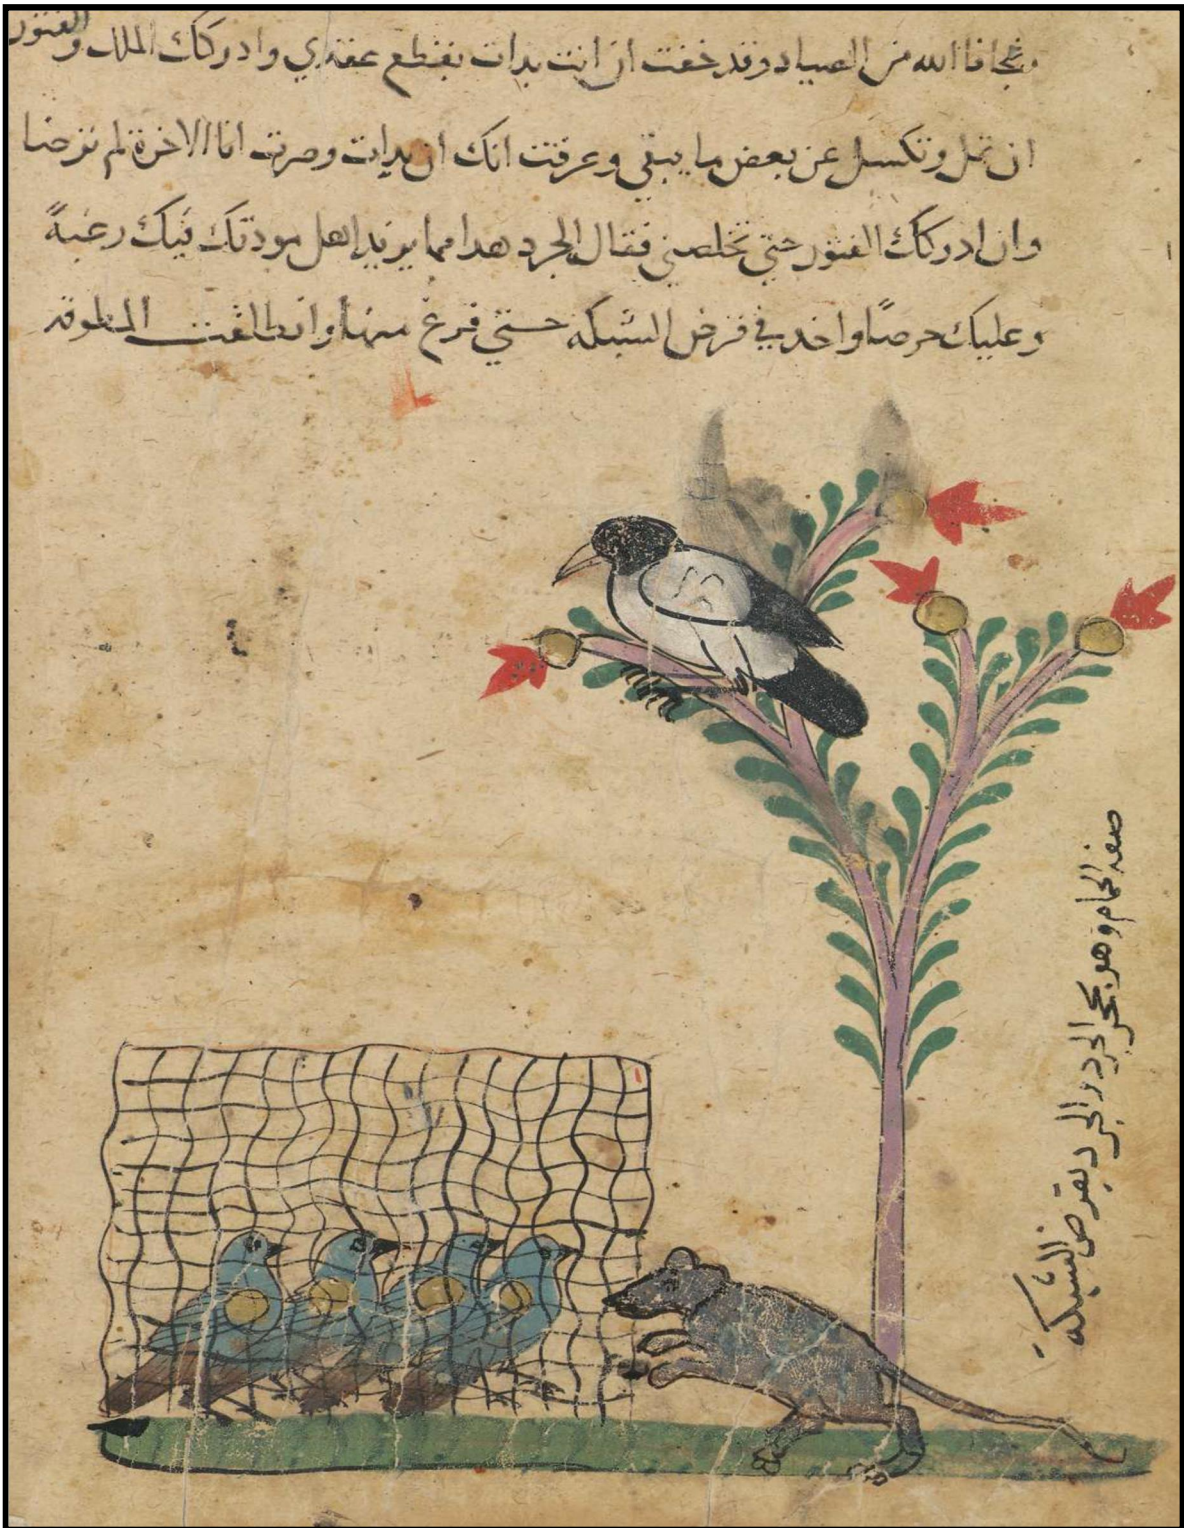 ونجانا الله من الصياد وقد خفت ان انت بدات بقطع عقدي وادركك الملل والفتور
ان تمل وتكسل عن بعض ما يبقي وعرفت انك ان بدات وصرت انا الاخرة لم ترضا
وان ادرككك الفتور حتي تخلصني فقال الجرد هدا مما يزيد اهل مودتك فيك رغبةً
وعليك حرصًا واخد في قرض الشبكه حتي فرغ منها وانطلقت المطوقه
صفه الحمام وهو بجحر الجرد والجرد يقرض الشبكه